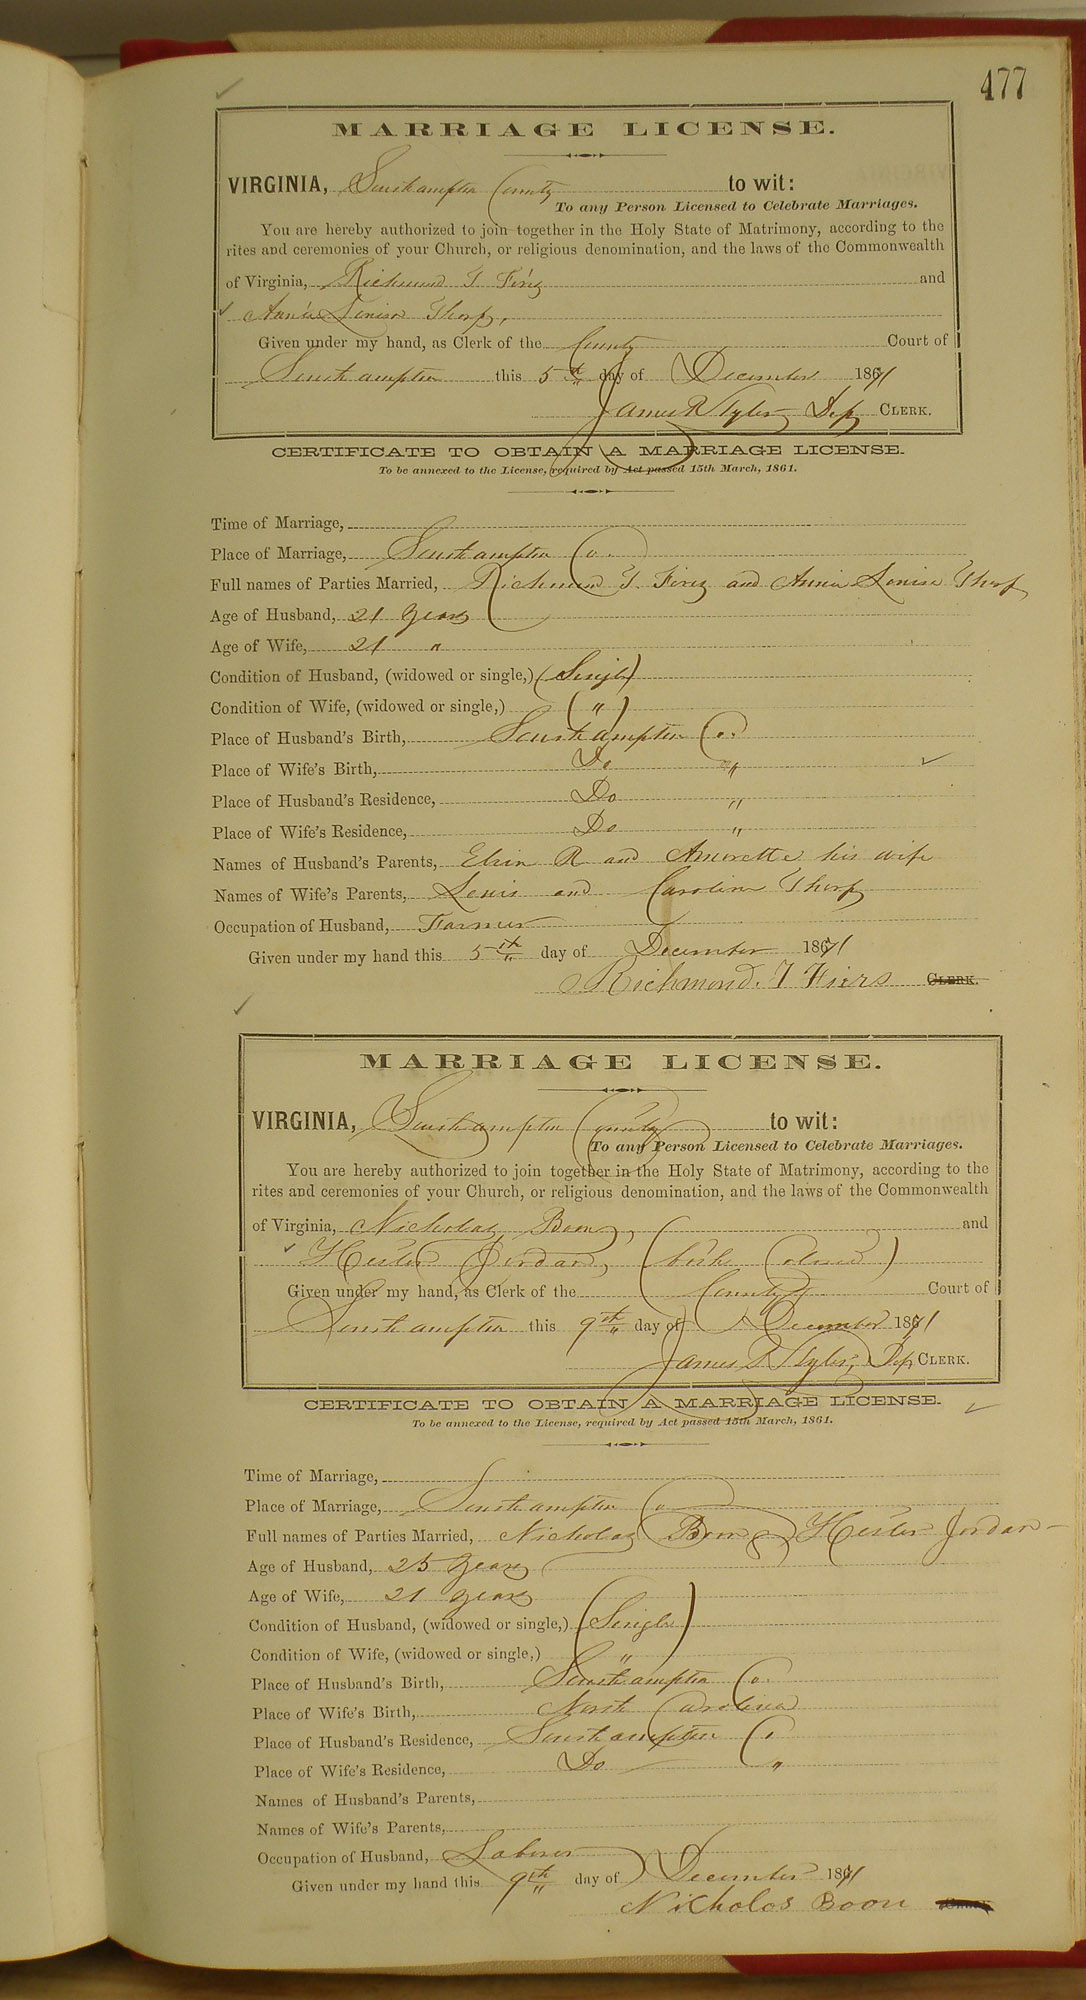 477
MARRIAGE LICENSE.
VIRGINIA, Southampton County to wit:
To any Person Licensed to Celebrate Marriages.
You are hereby authorized to join together in the Holy State of Matrimony, according to the
rites and ceremonies of your Church, or religious denomination, and the laws of the Commonwealth
of Virginia, Richmond T and
Annie Louisa Thorp,
Given under my hand, as Clerk of the County Court of
Southampton this 5th day of December 1871
James R Tyler, Dep CLERK.
CERTIFICATE TO OBTAIN A MARRIAGE LICENSE.
To be annexed to the License, required by Act passed 15th March, 1861.
Time of Marriage,
Place of Marriage, Southampton Co.
Full names of Parties Married, Richmond T. and Annie Louisa Thorp
Age of Husband, 21 years
Age of Wife, 21 "
Condition of Husband, (widowed or single,) (Single)
Condition of Wife, (widowed or single,) ( " )
Place of Husband's Birth, Southampton Co.
Place of Wife's Birth, Do "
Place of Husband's Residence, Do "
Place of Wife's Residence, Do "
Names of Husband's Parents, R and his wife
Names of Wife's Parents, Lewis and Caroline Thorp
Occupation of Husband, Farmer
Given under my hand this 5th day of December 1871
Richmond. T Fiers CLERK.
MARRIAGE LICENSE.
VIRGINIA, Southampton County to wit:
To any Person Licensed to Celebrate Marriages.
You are hereby authorized to join together in the Holy State of Matrimony, according to the
rites and ceremonies of your Church, or religious denomination, and the laws of the Commonwealth
of Virginia, Nicholas Boon, and
Hester Jordan, (both Colored)
Given under my hand, as Clerk of the County Court of
Southampton this 9th day of December 1871
James R Tyler, Dep CLERK.
CERTIFICATE TO OBTAIN A MARRIAGE LICENSE.
To be annexed to the License, required by Act passed 15th March, 1861.
Time of Marriage,
Place of Marriage, Southampton Co
Full names of Parties Married, Nicholas Boon & Hester Jordan
Age of Husband, 25 years
Age of Wife, 21 years
Condition of Husband, (widowed or single,) (Single)
Condition of Wife, (widowed or single,) "
Place of Husband's Birth, Southampton Co.
Place of Wife's Birth, North Carolina
Place of Husband's Residence, Southampton Co
Place of Wife's Residence, Do "
Names of Husband's Parents,
Names of Wife's Parents,
Occupation of Husband, Laborer
Given under my hand this 9th day of December 1871
Nicholos Boon